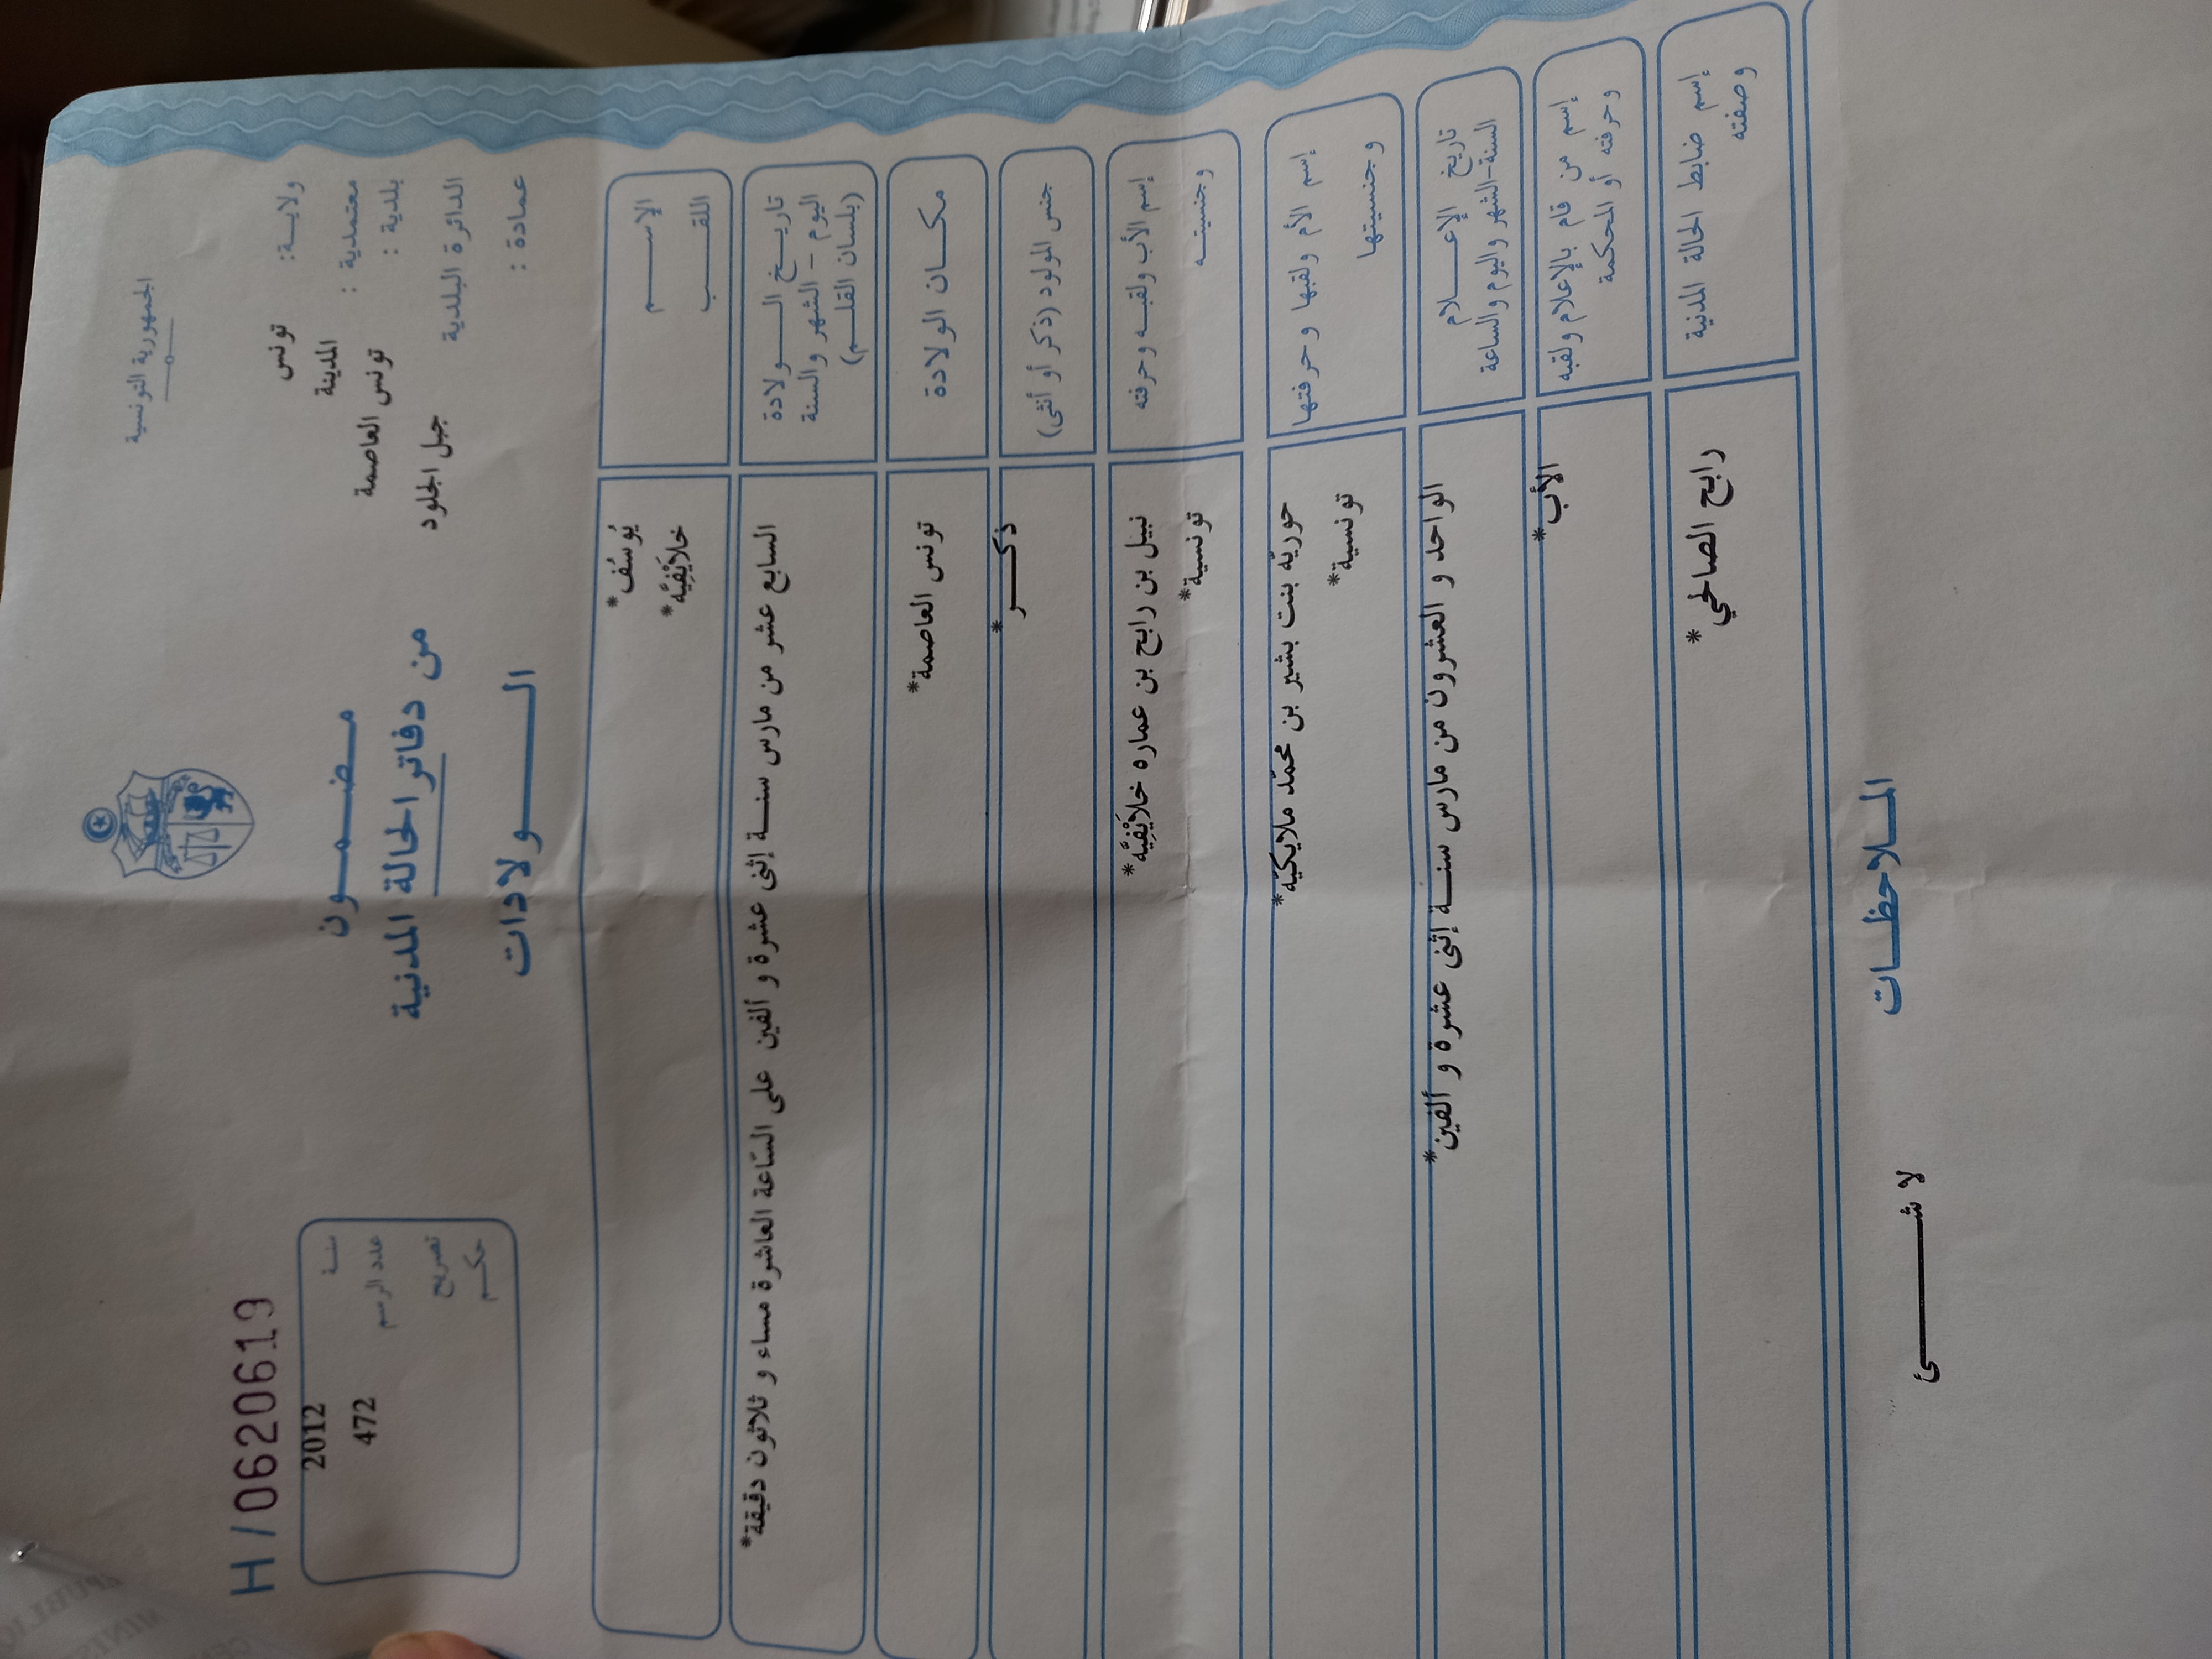 الجمهورية التونسية
ولاية: تونس
معتمدية : المدينة
بلدية : تونس العاصمة
الدائرة البلدية جبل الجلود
عمادة :
مضمون
من دفاتر الحالة المدنية
الولادات
H/0620619
سنة 2012
عدد الرسم 472
تصريح
حكم
الاسم يُوسُف*
اللقب خلاَيْفِيَّه*
تاريخ الولادة
اليوم - الشهر والسنة
(بلسان القلم)
السابع عشر من مارس سنة إثنى عشرة و ألفين على السّاعة العاشرة مساء و ثلاثون دقيقة*
مكان الولادة تونس العاصمة*
جنس المولود (ذكر أو أنثى) ذكر*
إسم الأب ولقبه وحرفته نبيل بن رابح بن عماره خلاَيْفِيَّه*
وجنسيته تونسية*
إسم الأم ولقبها وحرفتها حوريّه بنت بشير بن محمّد ملايكيّه*
وجنسيتها تونسية*
تاريخ الإعلام
السنة-الشهر واليوم والساعة
الواحد و العشرون من مارس سنة إثنى عشرة و ألفين*
إسم من قام بالإعلام ولقبه
وحرفته أو المحكمة
الأب*
إسم ضابط الحالة المدنية
وصفته
رابح الصالحي*
الملاحظات
لا شئ